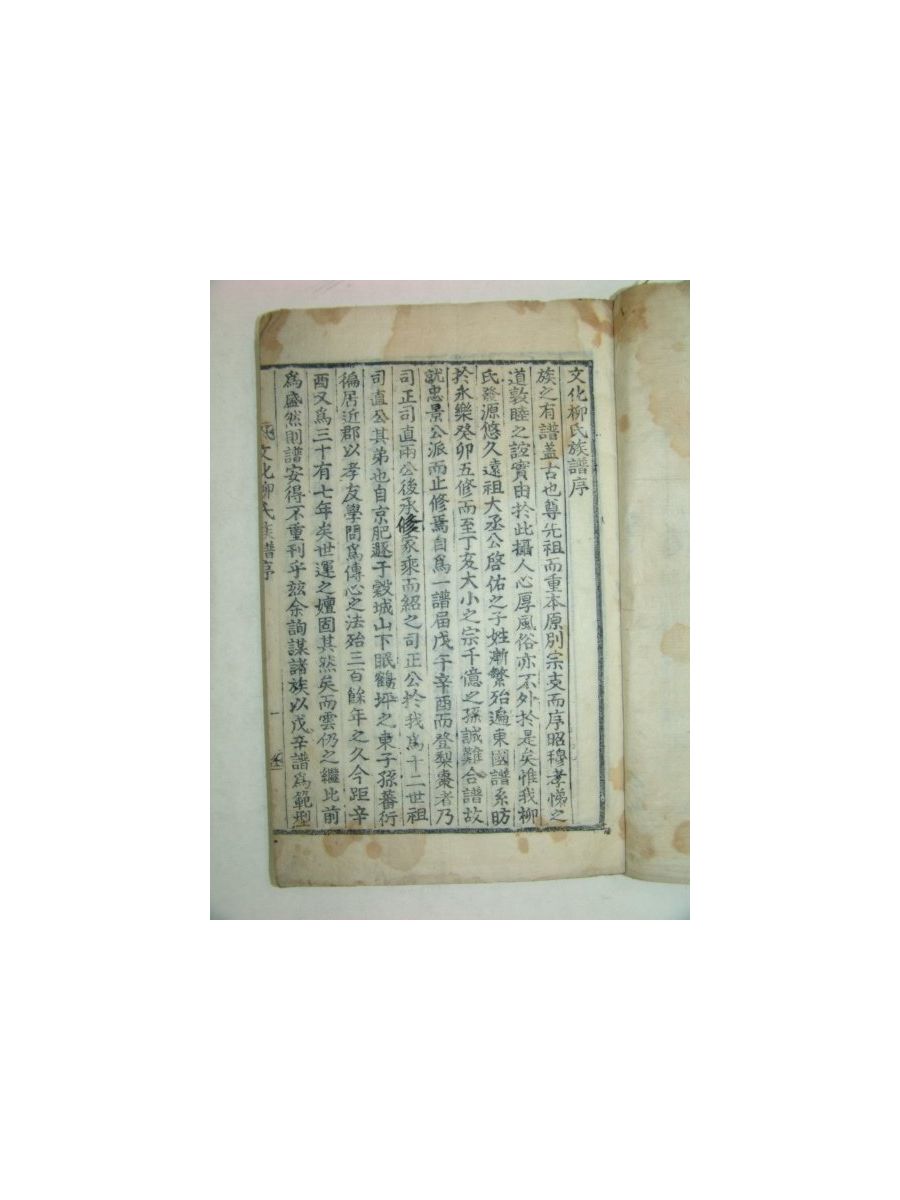 文化柳氏族譜序
族之有譜盖古也尊先祖而重本原別宗支而序昭穆孝悌之
道敦睦之誼實由於此攝人心厚風俗亦不外於是矣惟我柳
氏發源悠久遠祖大丞公啓佑之子姓漸繁殆遍東國譜系昉
於永樂癸卯五修而至丁亥大小之宗千億之孫誠難合譜故
就忠景公派而止修焉自爲一譜届戊午辛酉而登梨棗者乃
司正司直兩公後承修家乘而紹之司正公於我爲十二世祖
司直公其弟也自京肥遯于穀城山下眠鶴坪之東子孫蕃衍
徧居近郡以孝友學問爲傳心之法殆三百餘年之久今距辛
酉又爲三十有七年矣世運之嬗固其然矣而雲仍之繼比前
爲盛然則譜安得不重刊乎玆余詢謀諸族以戊辛譜爲範型
文化柳氏族譜序 一